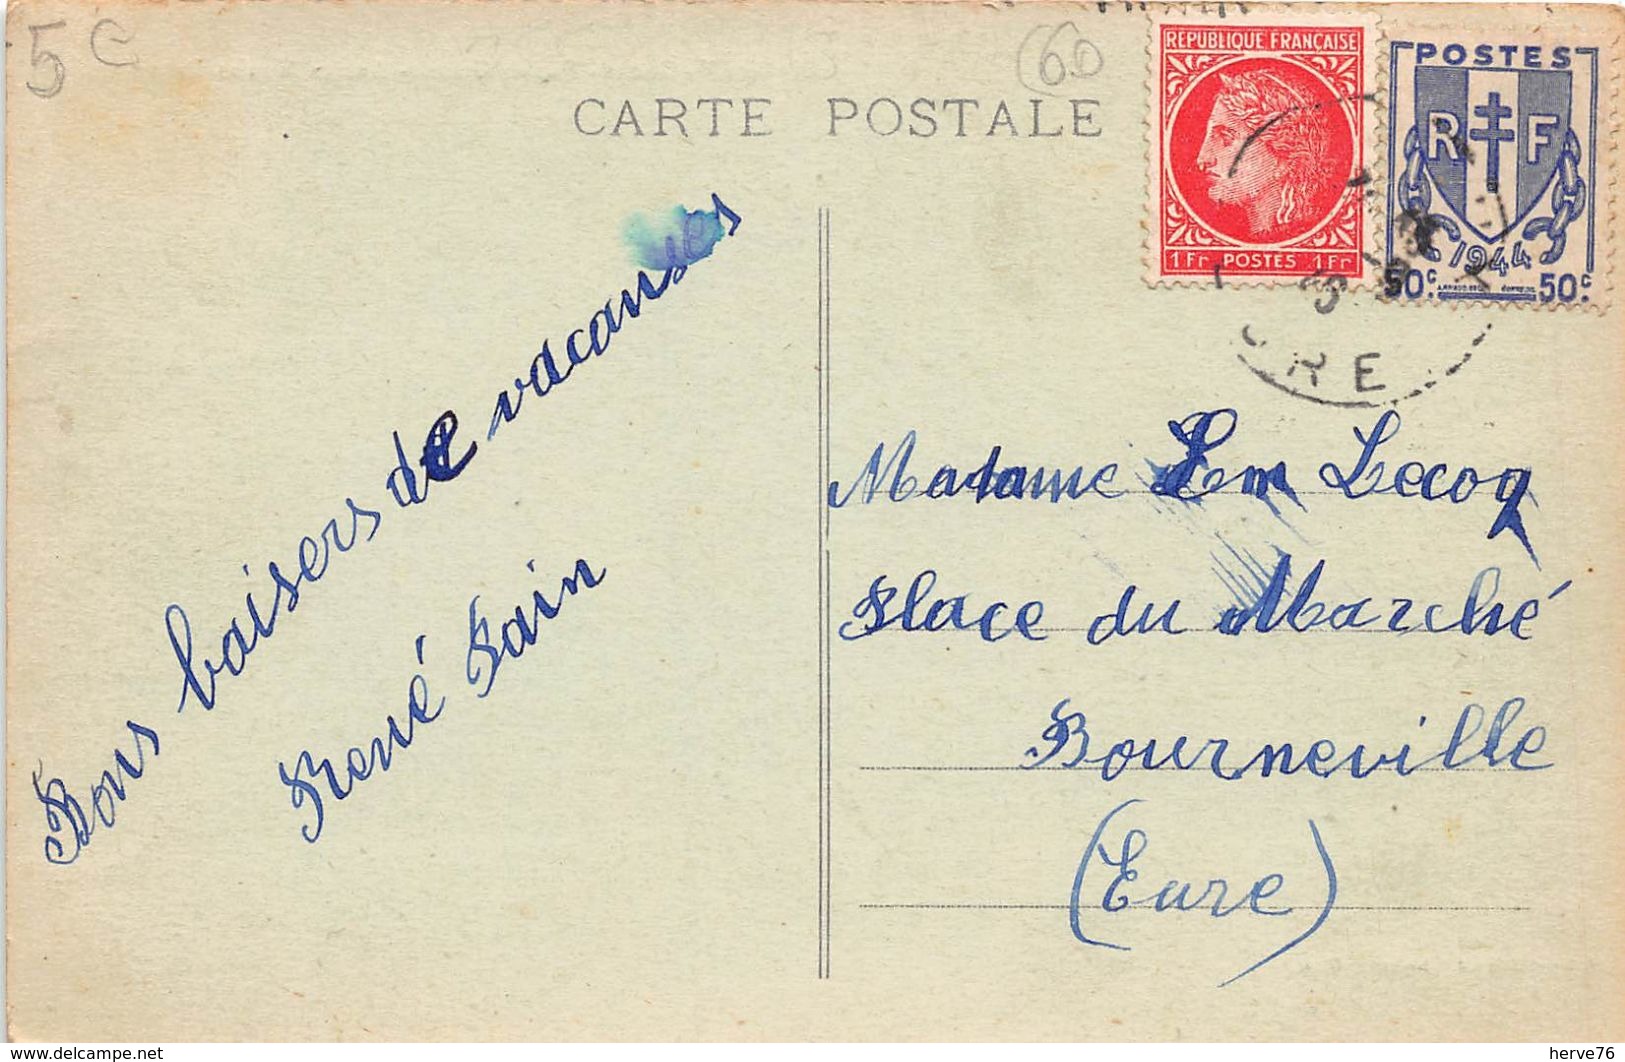 5c
60
CARTE POSTALE
REPUBLIQUE FRANÇAISE
1Fr POSTES 1Fr
POSTES
R F
1944
50c. 50c
RE
Bons baisers de vacanses
René Pain
Madame Em Lecoq
Place du Marché
Bourneville
(Eure)
www.delcampe.net
herve76